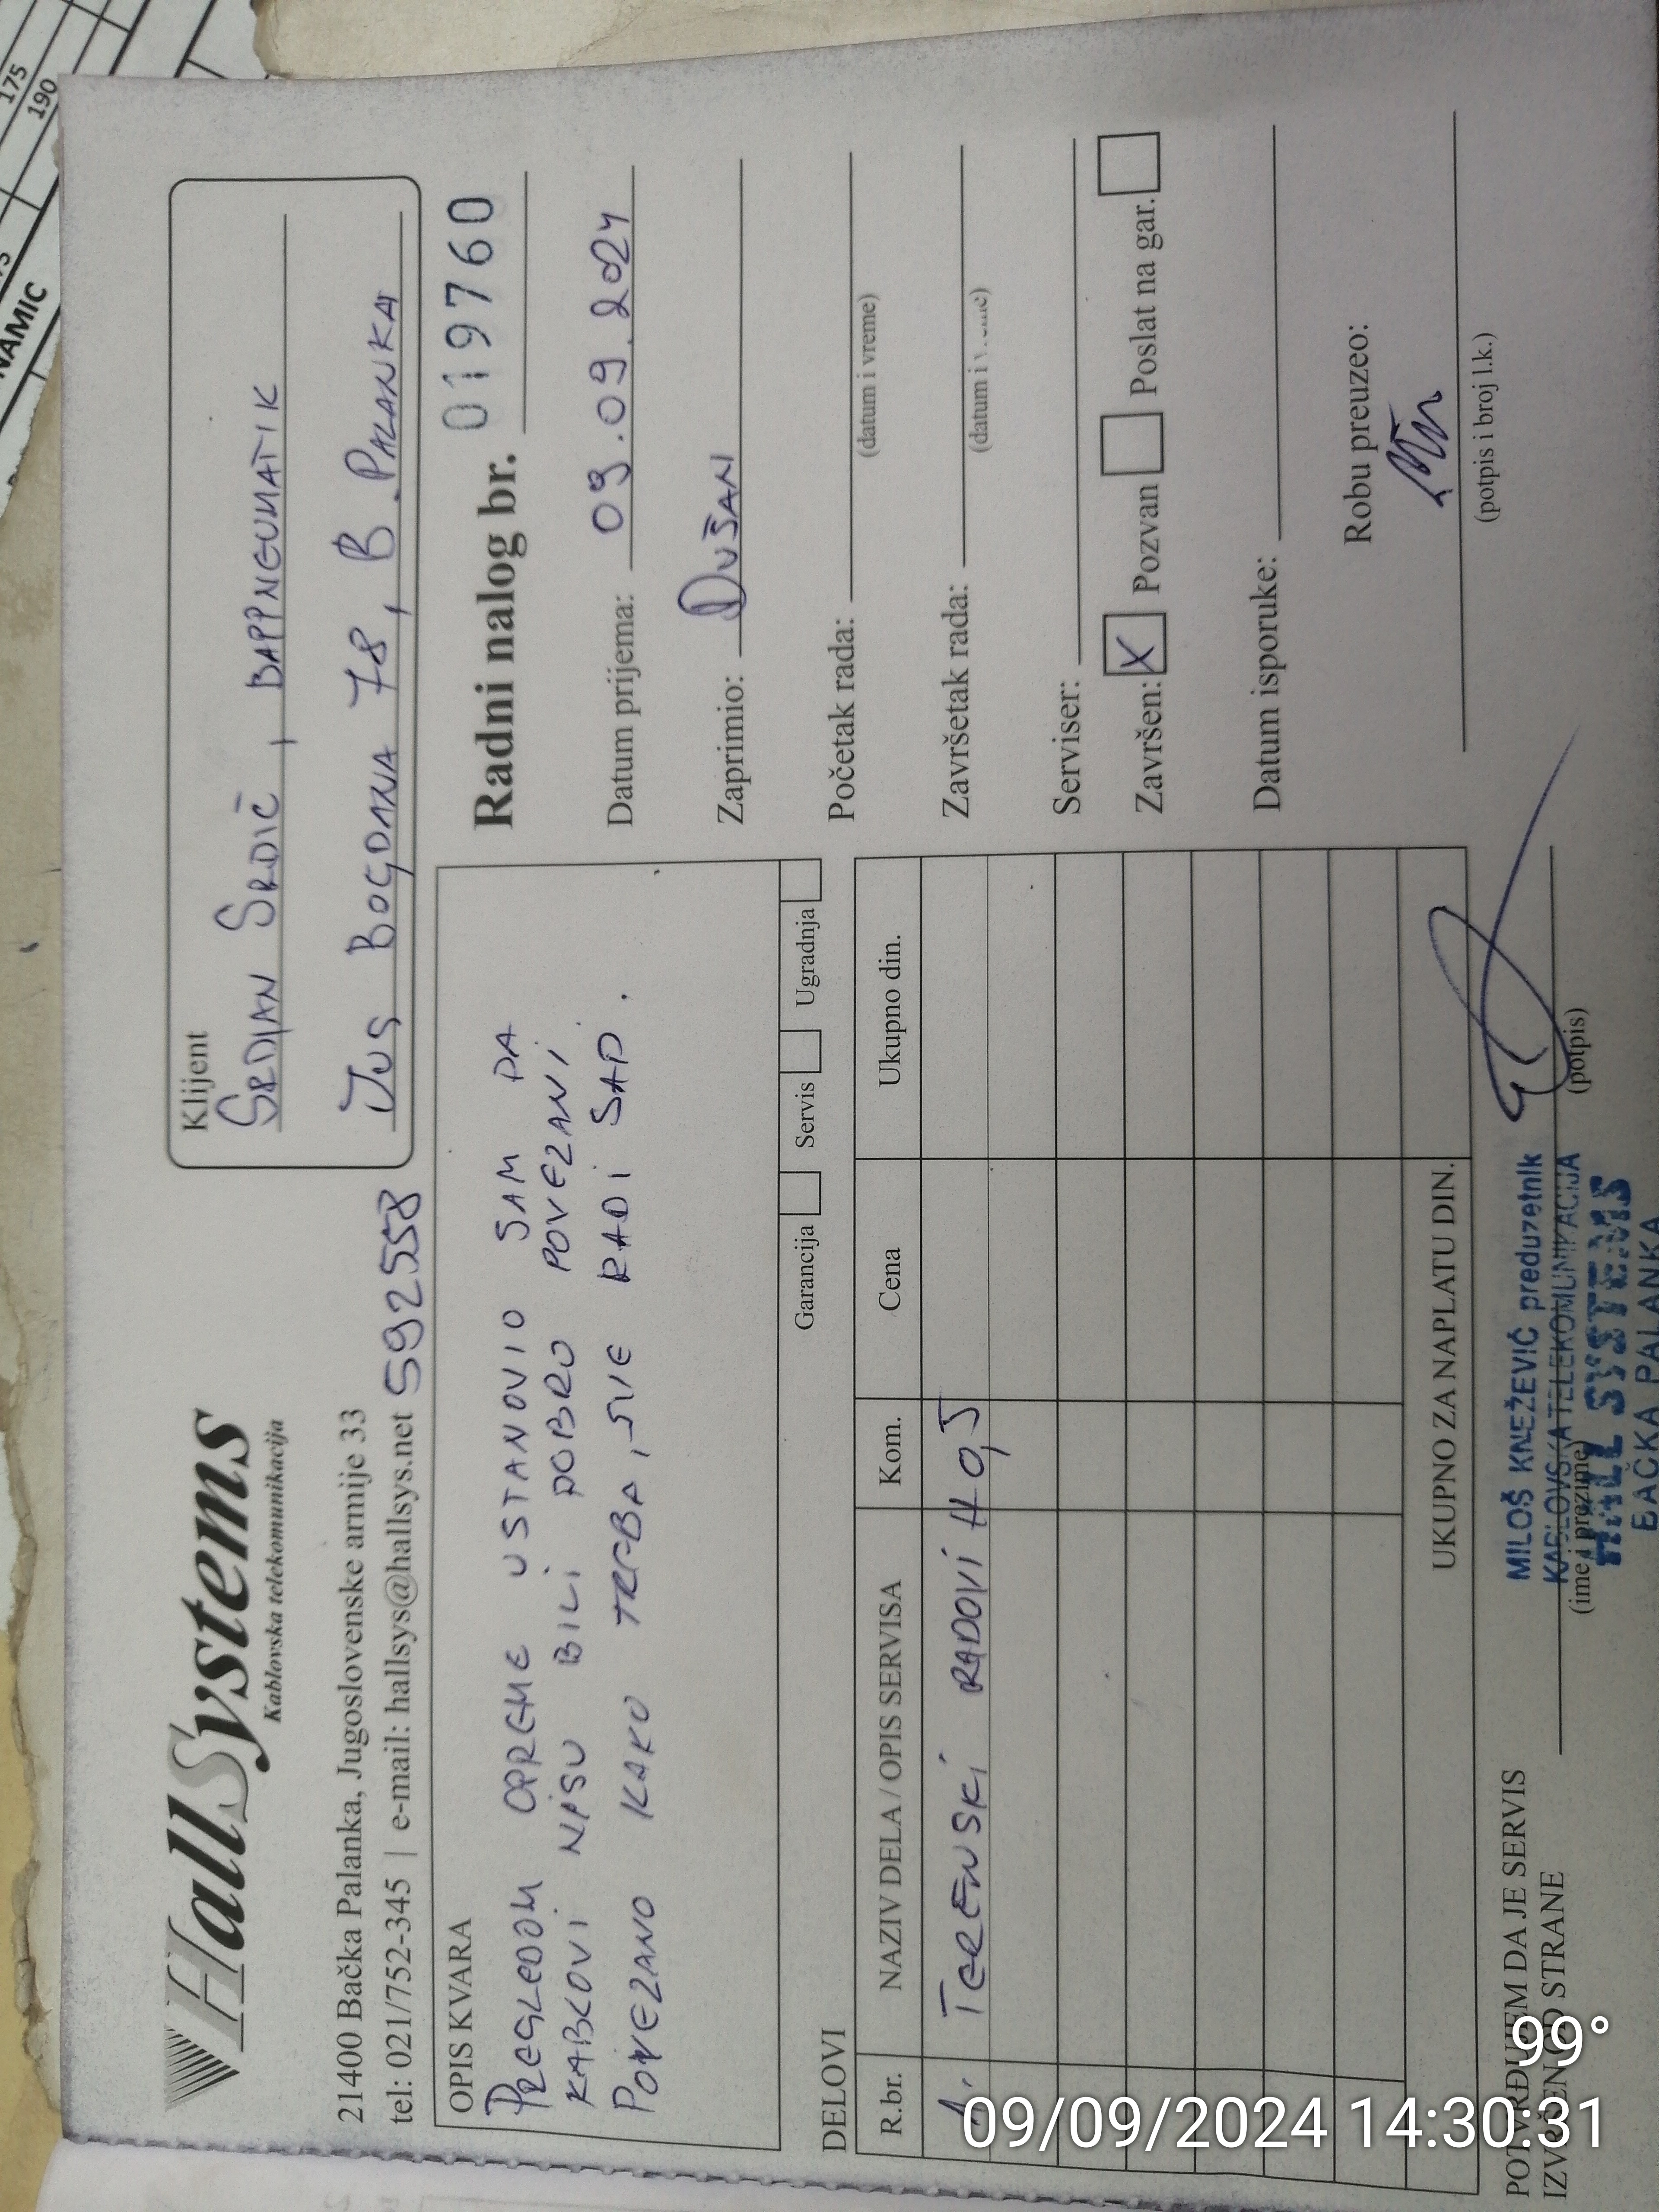 HallSystems
Kablovska telekomunikacija
21400 Bačka Palanka, Jugoslovenske armije 33
tel: 021/752-345 | e-mail: hallsys@hallsys.net
592558
Klijent
SRDJAN SRDIĆ, BAPPNEUMATIK
JUG BOGDANA 78, B. PALANKA
OPIS KVARA
PREGLEDOM OPREME USTANOVIO SAM DA
KABLOVI NISU BILI DOBRO POVEZANI
POVEZANO KAKO TREBA, SVE RADI SAD.
Garancija Servis Ugradnja
Radni nalog br. 019760
Datum prijema: 09.09.2024
Zaprimio: DUŠAN
Početak rada:
(datum i vreme)
Završetak rada:
(datum i
Serviser:
Završen: X Pozvan Poslat na gar.
Datum isporuke:
Robu preuzeo:
(potpis i broj l.k.)
DELOVI
R.br. NAZIV DELA / OPIS SERVISA Kom. Cena Ukupno din.
1. TERENSKI RADOVI H 0,5
UKUPNO ZA NAPLATU DIN.
POTVRĐUJEM DA JE SERVIS
IZVRŠEN OD STRANE
(ime i prezime)
(potpis)
MILOŠ KNEŽEVIĆ preduzetnik
KABLOVSKA TELEKOMUNIKACIJA
HALL SYSTEMS
BAČKA PALANKA
175
190
NAMIC
99°
09/09/2024 14:30:31